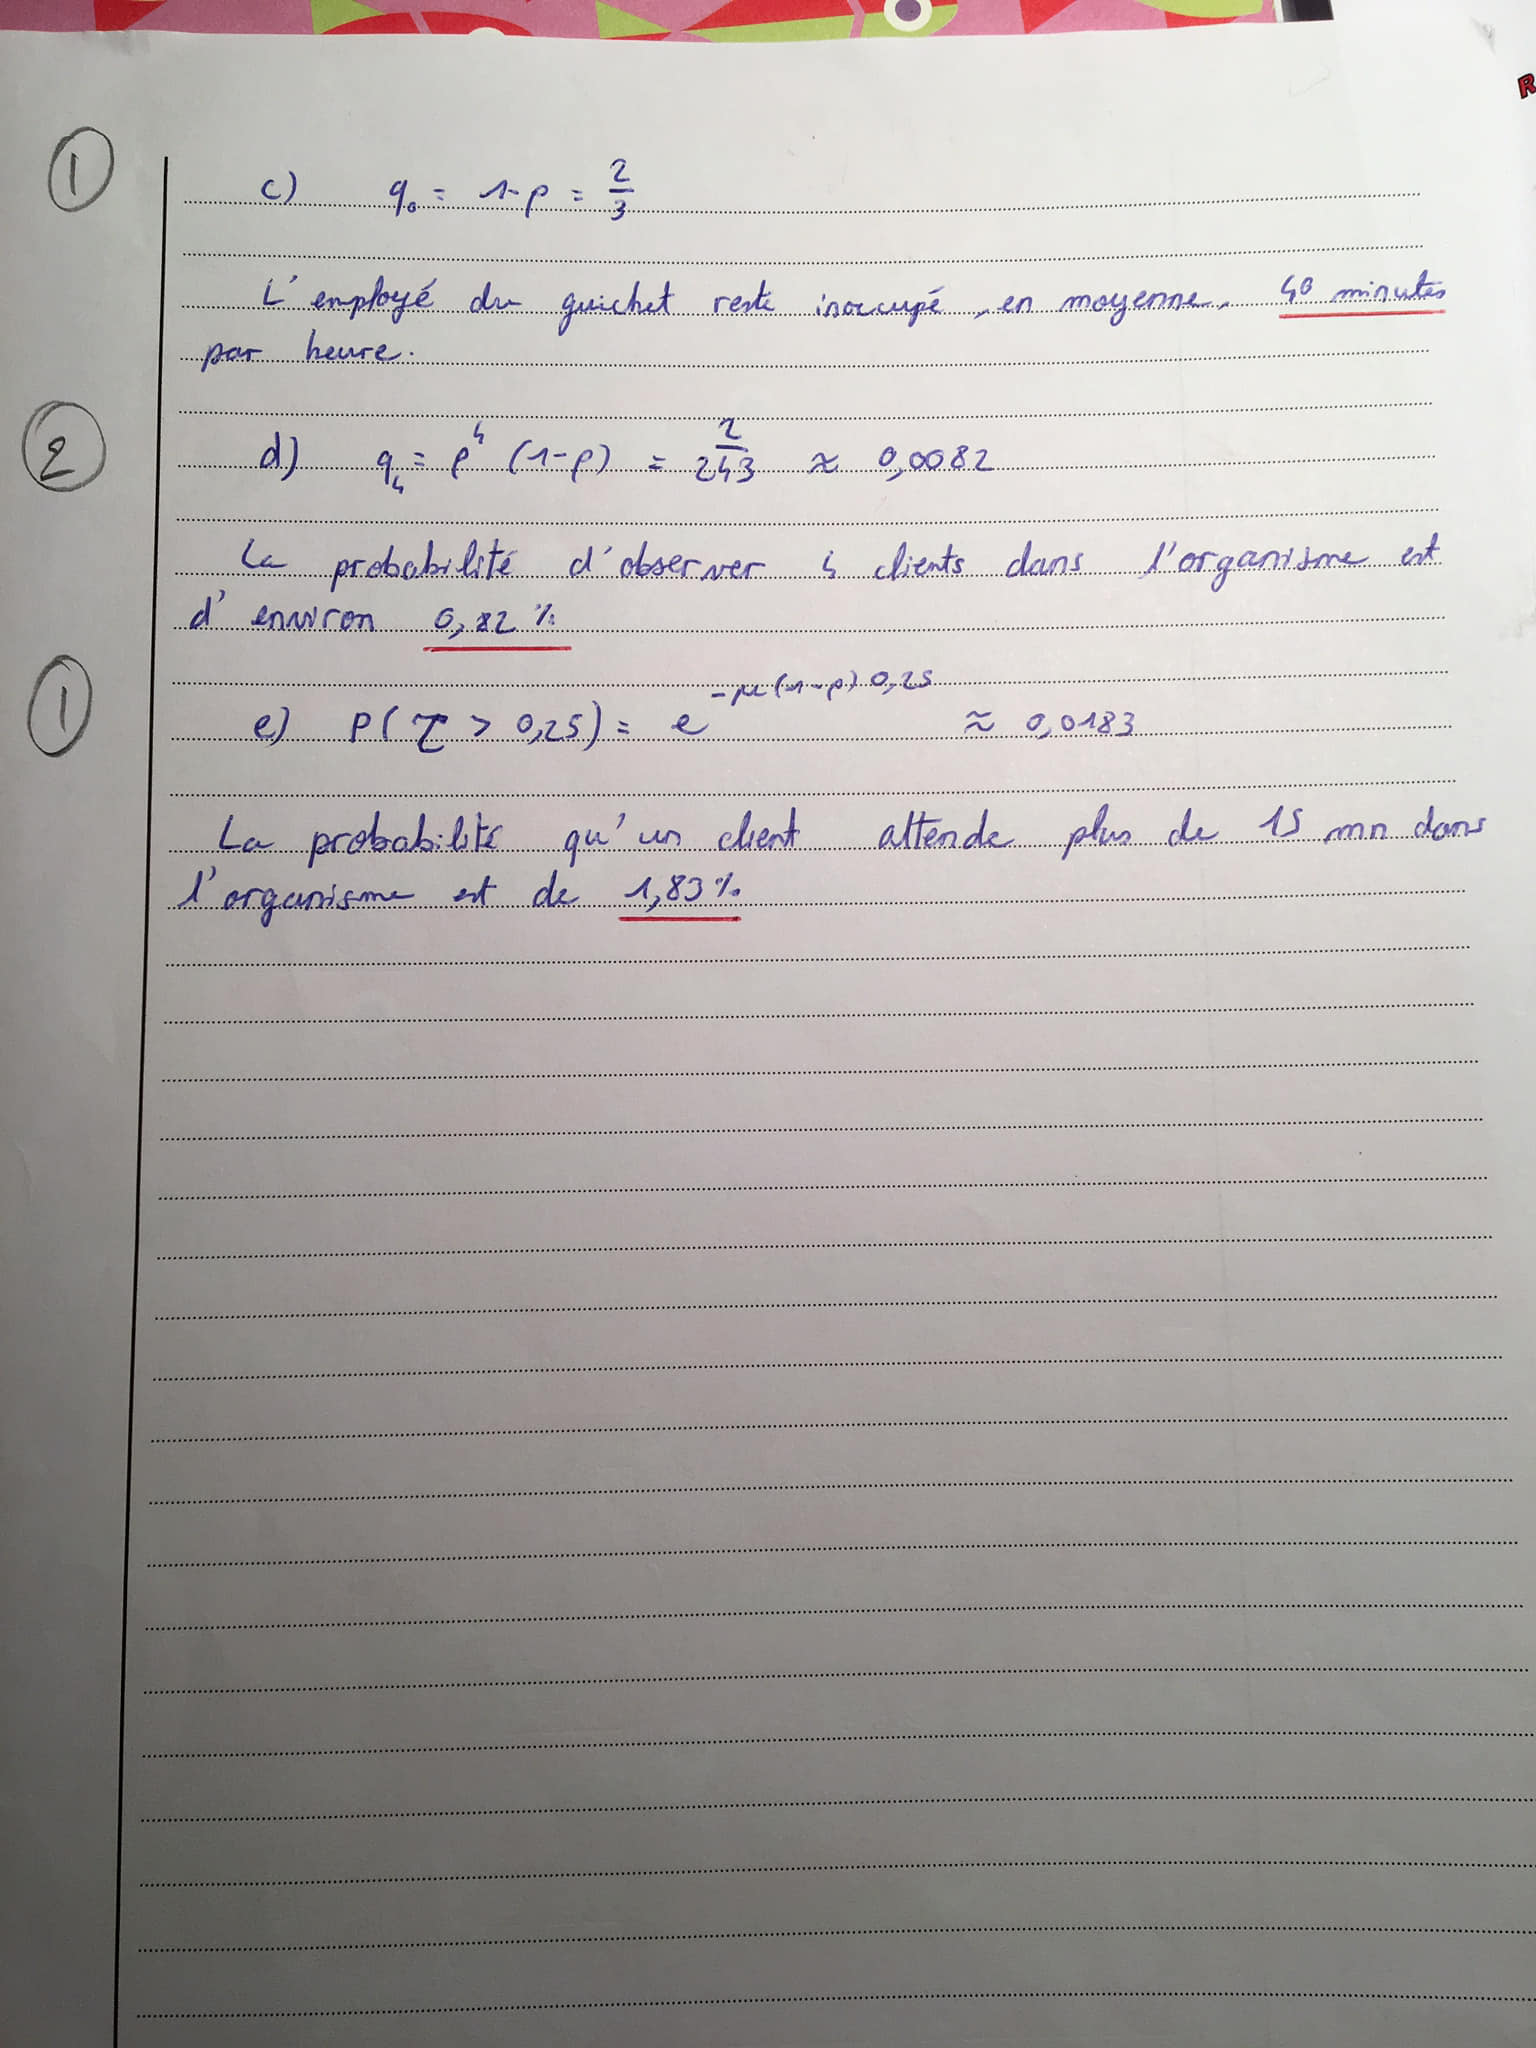 R
1
c) q₀ = 1-ρ = 2/3
L'employé du guichet reste inoccupé, en moyenne, 40 minutes
par heure.
2
d) q₄ = ρ⁴ (1-ρ) = 2/243 ≈ 0,0082
La probabilité d'observer 4 clients dans l'organisme est
d'environ 0,82 %
1
e) P(τ > 0,25) = e^(-μ(1-ρ) 0,25) ≈ 0,0183
La probabilité qu'un client attende plus de 15 mn dans
l'organisme est de 1,83 %